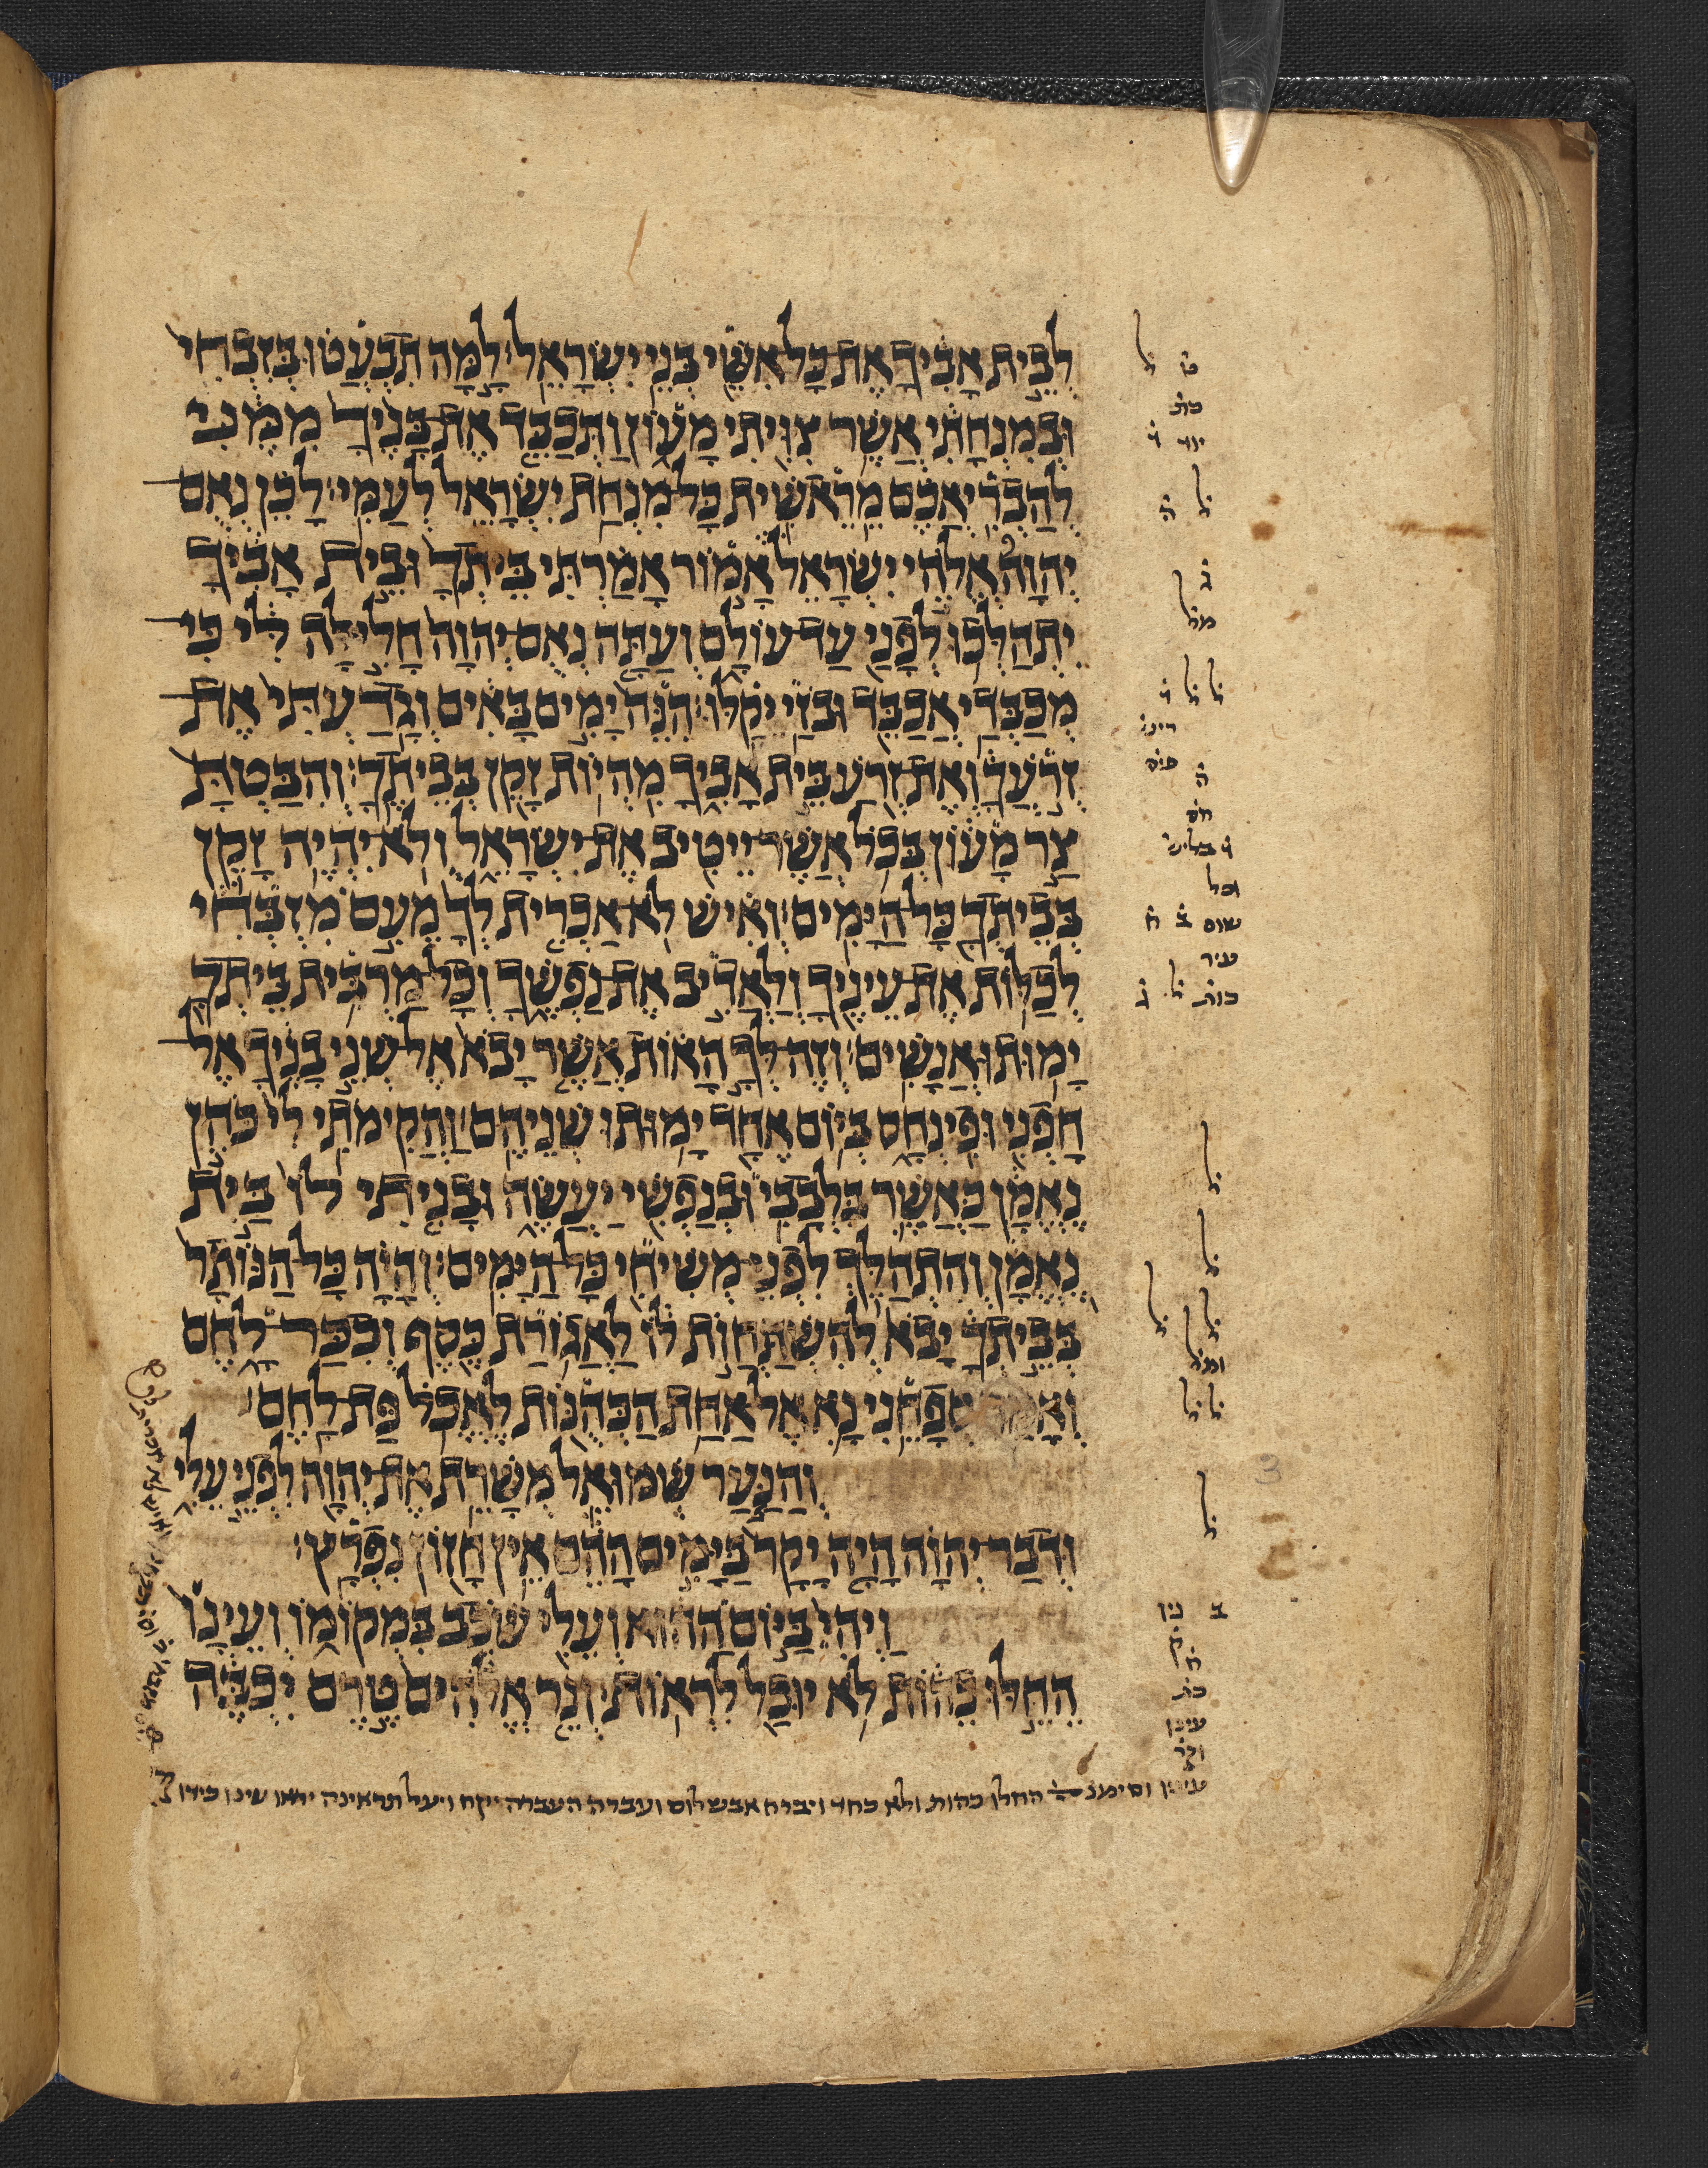 לְבֵית אָבִיךָ אֶת־כָּל־אִשֵּׁי בְּנֵי יִשְׂרָאֵל׃ לָמָּה תִבְעֲטוּ בְּזִבְחִי
וּבְמִנְחָתִי אֲשֶׁר צִוִּיתִי מָעוֹן וַתְּכַבֵּד אֶת־בָּנֶיךָ מִמֶּנִּי
לְהַבְרִיאֲכֶם מֵרֵאשִׁית כָּל־מִנְחַת יִשְׂרָאֵל לְעַמִּי׃ לָכֵן נְאֻם
יְהוָה אֱלֹהֵי יִשְׂרָאֵל אָמוֹר אָמַרְתִּי בֵּיתְךָ וּבֵית אָבִיךָ
יִתְהַלְּכוּ לְפָנַי עַד־עוֹלָם וְעַתָּה נְאֻם־יְהוָה חָלִילָה לִּי כִּי
מְכַבְּדַי אֲכַבֵּד וּבֹזַי יֵקָלּוּ׃ הִנֵּה יָמִים בָּאִים וְגָדַעְתִּי אֶת
זְרֹעֲךָ וְאֶת־זְרֹעַ בֵּית אָבִיךָ מִהְיוֹת זָקֵן בְּבֵיתֶךָ׃ וְהִבַּטְתָּ
צַר מָעוֹן בְּכֹל אֲשֶׁר־יֵיטִיב אֶת־יִשְׂרָאֵל וְלֹא־יִהְיֶה זָקֵן
בְּבֵיתְךָ כָּל־הַיָּמִים׃ וְאִישׁ לֹא־אַכְרִית לְךָ מֵעִם מִזְבְּחִי
לְכַלּוֹת אֶת־עֵינֶיךָ וְלַאֲדִיב אֶת־נַפְשֶׁךָ וְכָל־מַרְבִּית בֵּיתְךָ
יָמוּתוּ אֲנָשִׁים׃ וְזֶה־לְּךָ הָאוֹת אֲשֶׁר יָבֹא אֶל־שְׁנֵי בָנֶיךָ אֶל
חָפְנִי וּפִינְחָס בְּיוֹם אֶחָד יָמוּתוּ שְׁנֵיהֶם׃ וַהֲקִימֹתִי לִי כֹּהֵן
נֶאֱמָן כַּאֲשֶׁר בִּלְבָבִי וּבְנַפְשִׁי יַעֲשֶׂה וּבָנִיתִי לוֹ בַּיִת
נֶאֱמָן וְהִתְהַלֵּךְ לִפְנֵי־מְשִׁיחִי כָּל־הַיָּמִים׃ וְהָיָה כָּל־הַנּוֹתָר
בְּבֵיתְךָ יָבֹא לְהִשְׁתַּחֲוֺת לוֹ לַאֲגוֹרַת כֶּסֶף וְכִכַּר־לָחֶם
וְאָמַר סְפָחֵנִי נָא אֶל־אַחַת הַכְּהֻנּוֹת לֶאֱכֹל פַּת־לָחֶם׃
וְהַנַּעַר שְׁמוּאֵל מְשָׁרֵת אֶת־יְהוָה לִפְנֵי עֵלִי
וּדְבַר־יְהוָה הָיָה יָקָר בַּיָּמִים הָהֵם אֵין חָזוֹן נִפְרָץ׃
וַיְהִי בַּיּוֹם הַהוּא וְעֵלִי שֹׁכֵב בִּמְקוֹמוֹ וְעֵינָו
הֵחֵלּוּ כֵהוֹת לֹא יוּכַל לִרְאוֹת׃ וְנֵר אֱלֹהִים טֶרֶם יִכְבֶּה
החלו כהות ולא כחד ויברח אבשלום ועברה העברה יקח ויעל תראינה יראו עינו כידו